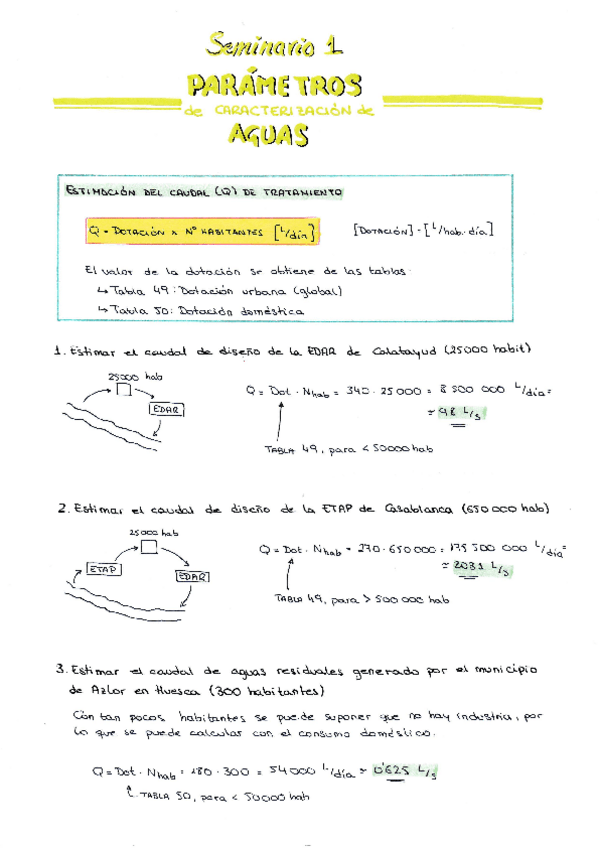 Seminario 1
PARÁMETROS
de CARACTERIZACIÓN de
AGUAS
ESTIMACIÓN DEL CAUDAL (Q) DE TRATAMIENTO
Q = DOTACIÓN x Nº HABITANTES [L/día] [DOTACIÓN] = [L/hab·día]
El valor de la dotación se obtiene de las tablas:
↳ Tabla 49: Dotación urbana (global)
↳ Tabla 50: Dotación doméstica
1. Estimar el caudal de diseño de la EDAR de Calatayud (25000 habit)
25000 hab
EDAR
Q = Dot · Nhab = 340 · 25000 = 8 500 000 L/día =
= 98 L/s
TABLA 49, para < 50000 hab
2. Estimar el caudal de diseño de la ETAP de Casablanca (650 000 hab)
25000 hab
ETAP
EDAR
Q = Dot · Nhab = 270 · 650 000 = 175 500 000 L/día =
= 2031 L/s
TABLA 49, para > 500 000 hab
3. Estimar el caudal de aguas residuales generado por el municipio
de Azlor en Huesca (300 habitantes)
Con tan pocos habitantes se puede suponer que no hay industria, por
lo que se puede calcular con el consumo doméstico.
Q = Dot · Nhab = 180 · 300 = 54 000 L/día = 0'625 L/s
TABLA 50, para < 50000 hab